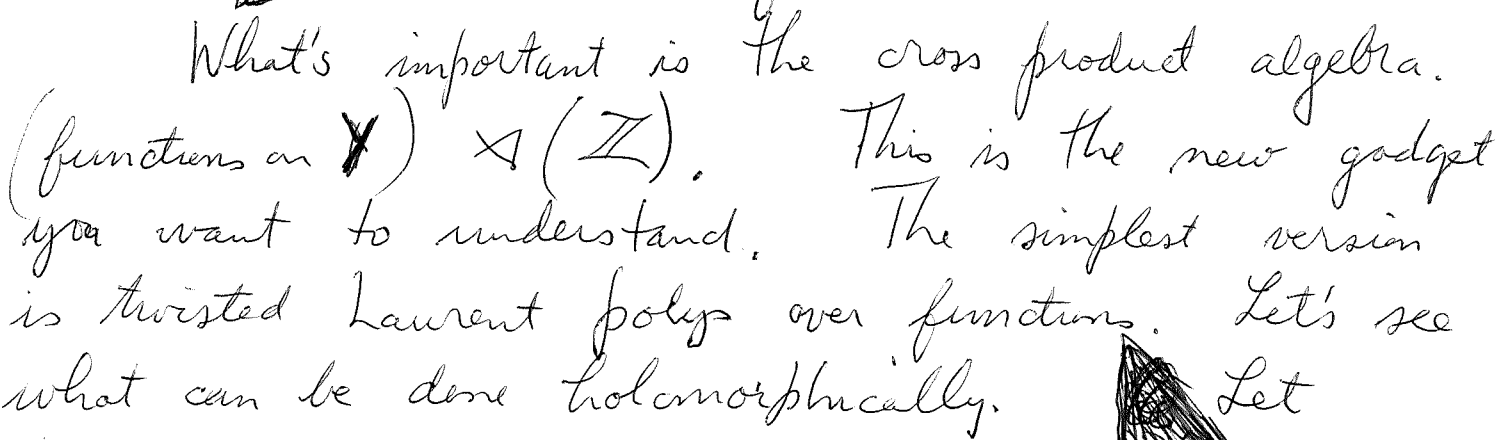 What's important is the cross product algebra.
(functions on Y) ⋊ (ℤ). This is the new gadget
you want to understand. The simplest version
is twisted Laurent polys over functions. Let's see
what can be done holomorphically. Let